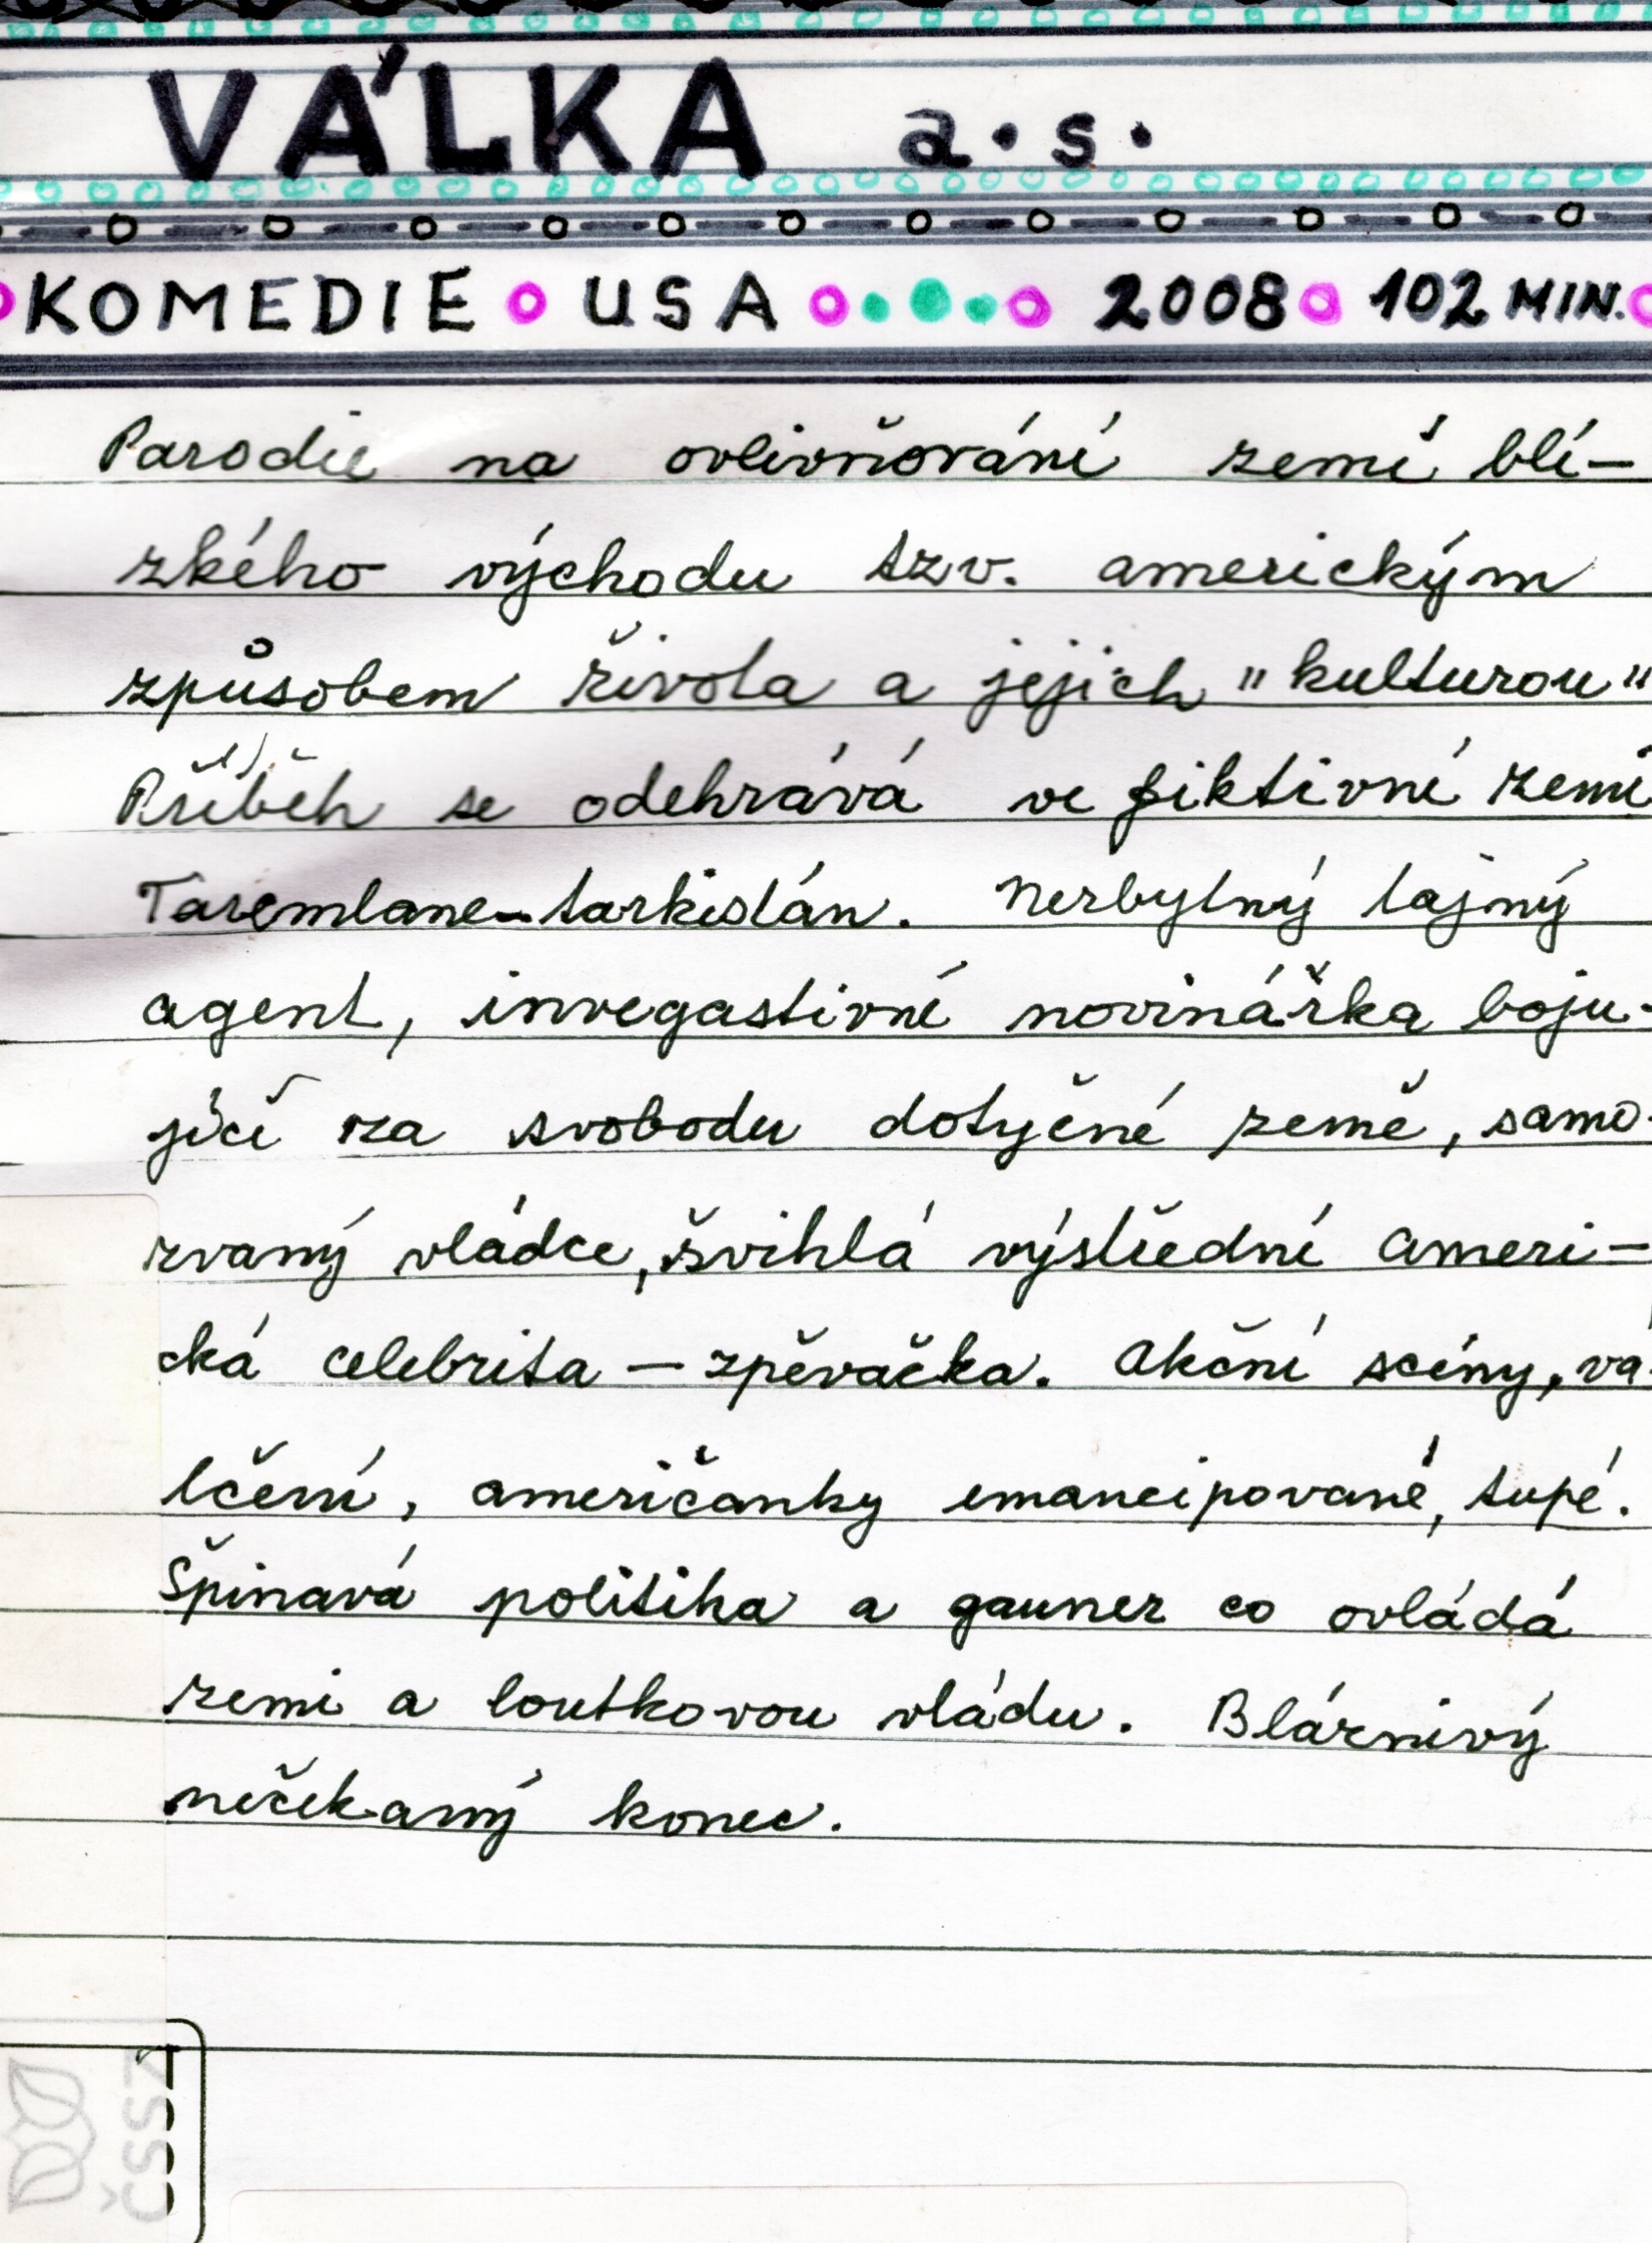 VÁLKA a.s.
KOMEDIE USA 2008 102 MIN.
Parodie na ovlivňování zemí blí-
zkého východu tzv. americkým
způsobem života a jejich "kulturou"
Příběh se odehrává ve fiktivní zemi
Taremlane-tarkistán. Nezbytný tajný
agent, invegastivní novinářka boju-
jící za svobodu dotyčné země, samo-
zvaný vládce, švihlá výstřední ameri-
cká celebrita - zpěvačka. Akční scény, vá-
lčení, američanky emancipované, tupé.
Špinavá politika a gauner co ovládá
zemi a loutkovou vládu. Bláznivý
nečekaný konec.
ČSSZ